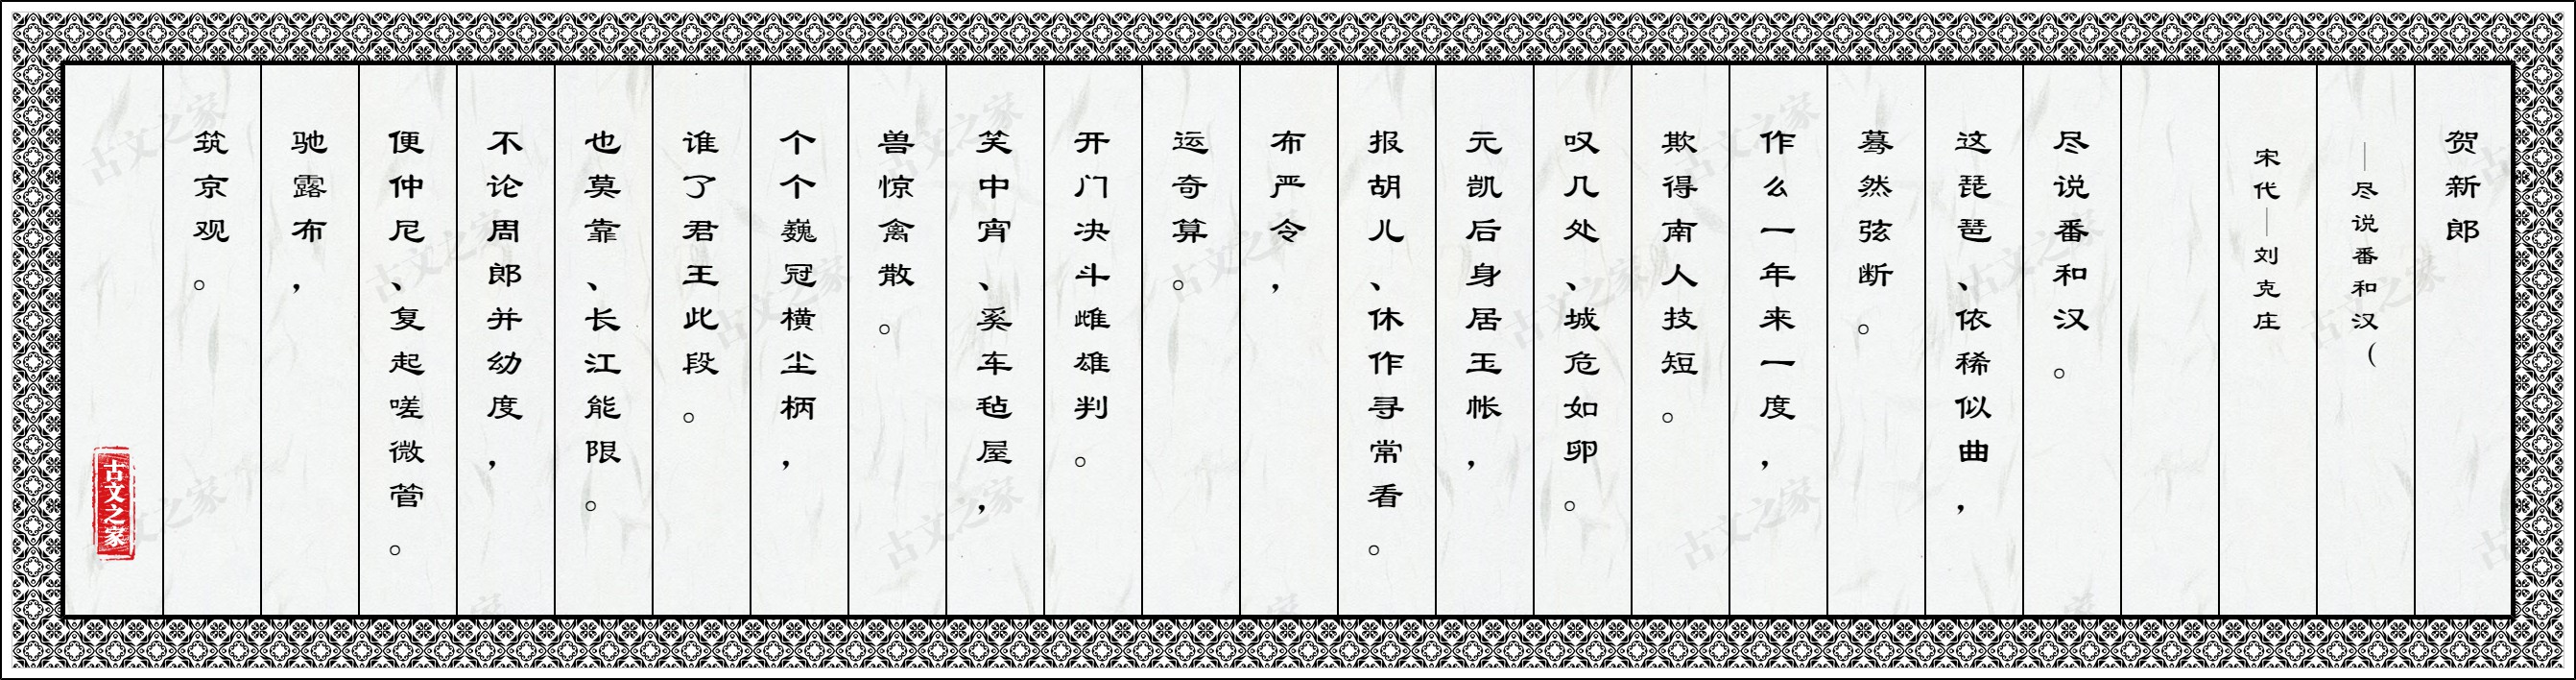 贺新郎
—尽说番和汉（
宋代—刘克庄
尽说番和汉。
这琵琶、依稀似曲，
蓦然弦断。
作么一年来一度，
欺得南人技短。
叹几处、城危如卵。
元凯后身居玉帐，
报胡儿、休作寻常看。
布严令，
运奇算。
开门决斗雌雄判。
笑中宵、奚车毡屋，
兽惊禽散。
个个巍冠横尘柄，
谁了君王此段。
也莫靠、长江能限。
不论周郎并幼度，
便仲尼、复起嗟微管。
驰露布，
筑京观。
古文之家